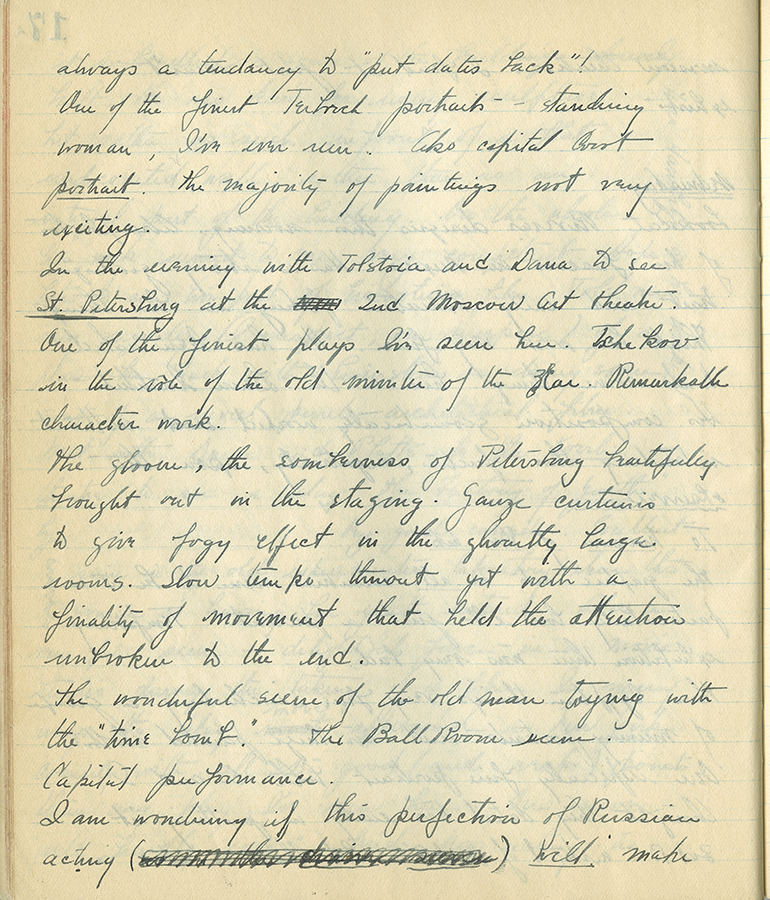 always a tendancy to "put dates back"!
One of the finest Terborch portraits - standing
woman, I've ever seen. Also capital
portrait. The majority of paintings not very
exciting.
In the evening with Tolstoia and Dana to see
St. Petersburg at the 2nd Moscow Art Theatre.
One of the finest plays I've seen here. Tshekov
in the role of the old minister of the Zar. Remarkable
character work.
The gloom, the somberness of Petersburg beautifully
brought out in the staging. Gauze curtains
to give fogy effect in the large
rooms. Slow tempo thruout yet with a
finality of movement that held the attention
unbroken to the end.
The wonderful scene of the old man toying with
the "time bomb". The Ball Room scene.
Capital performance.
I am wondering if this perfection of Russian
acting () will make